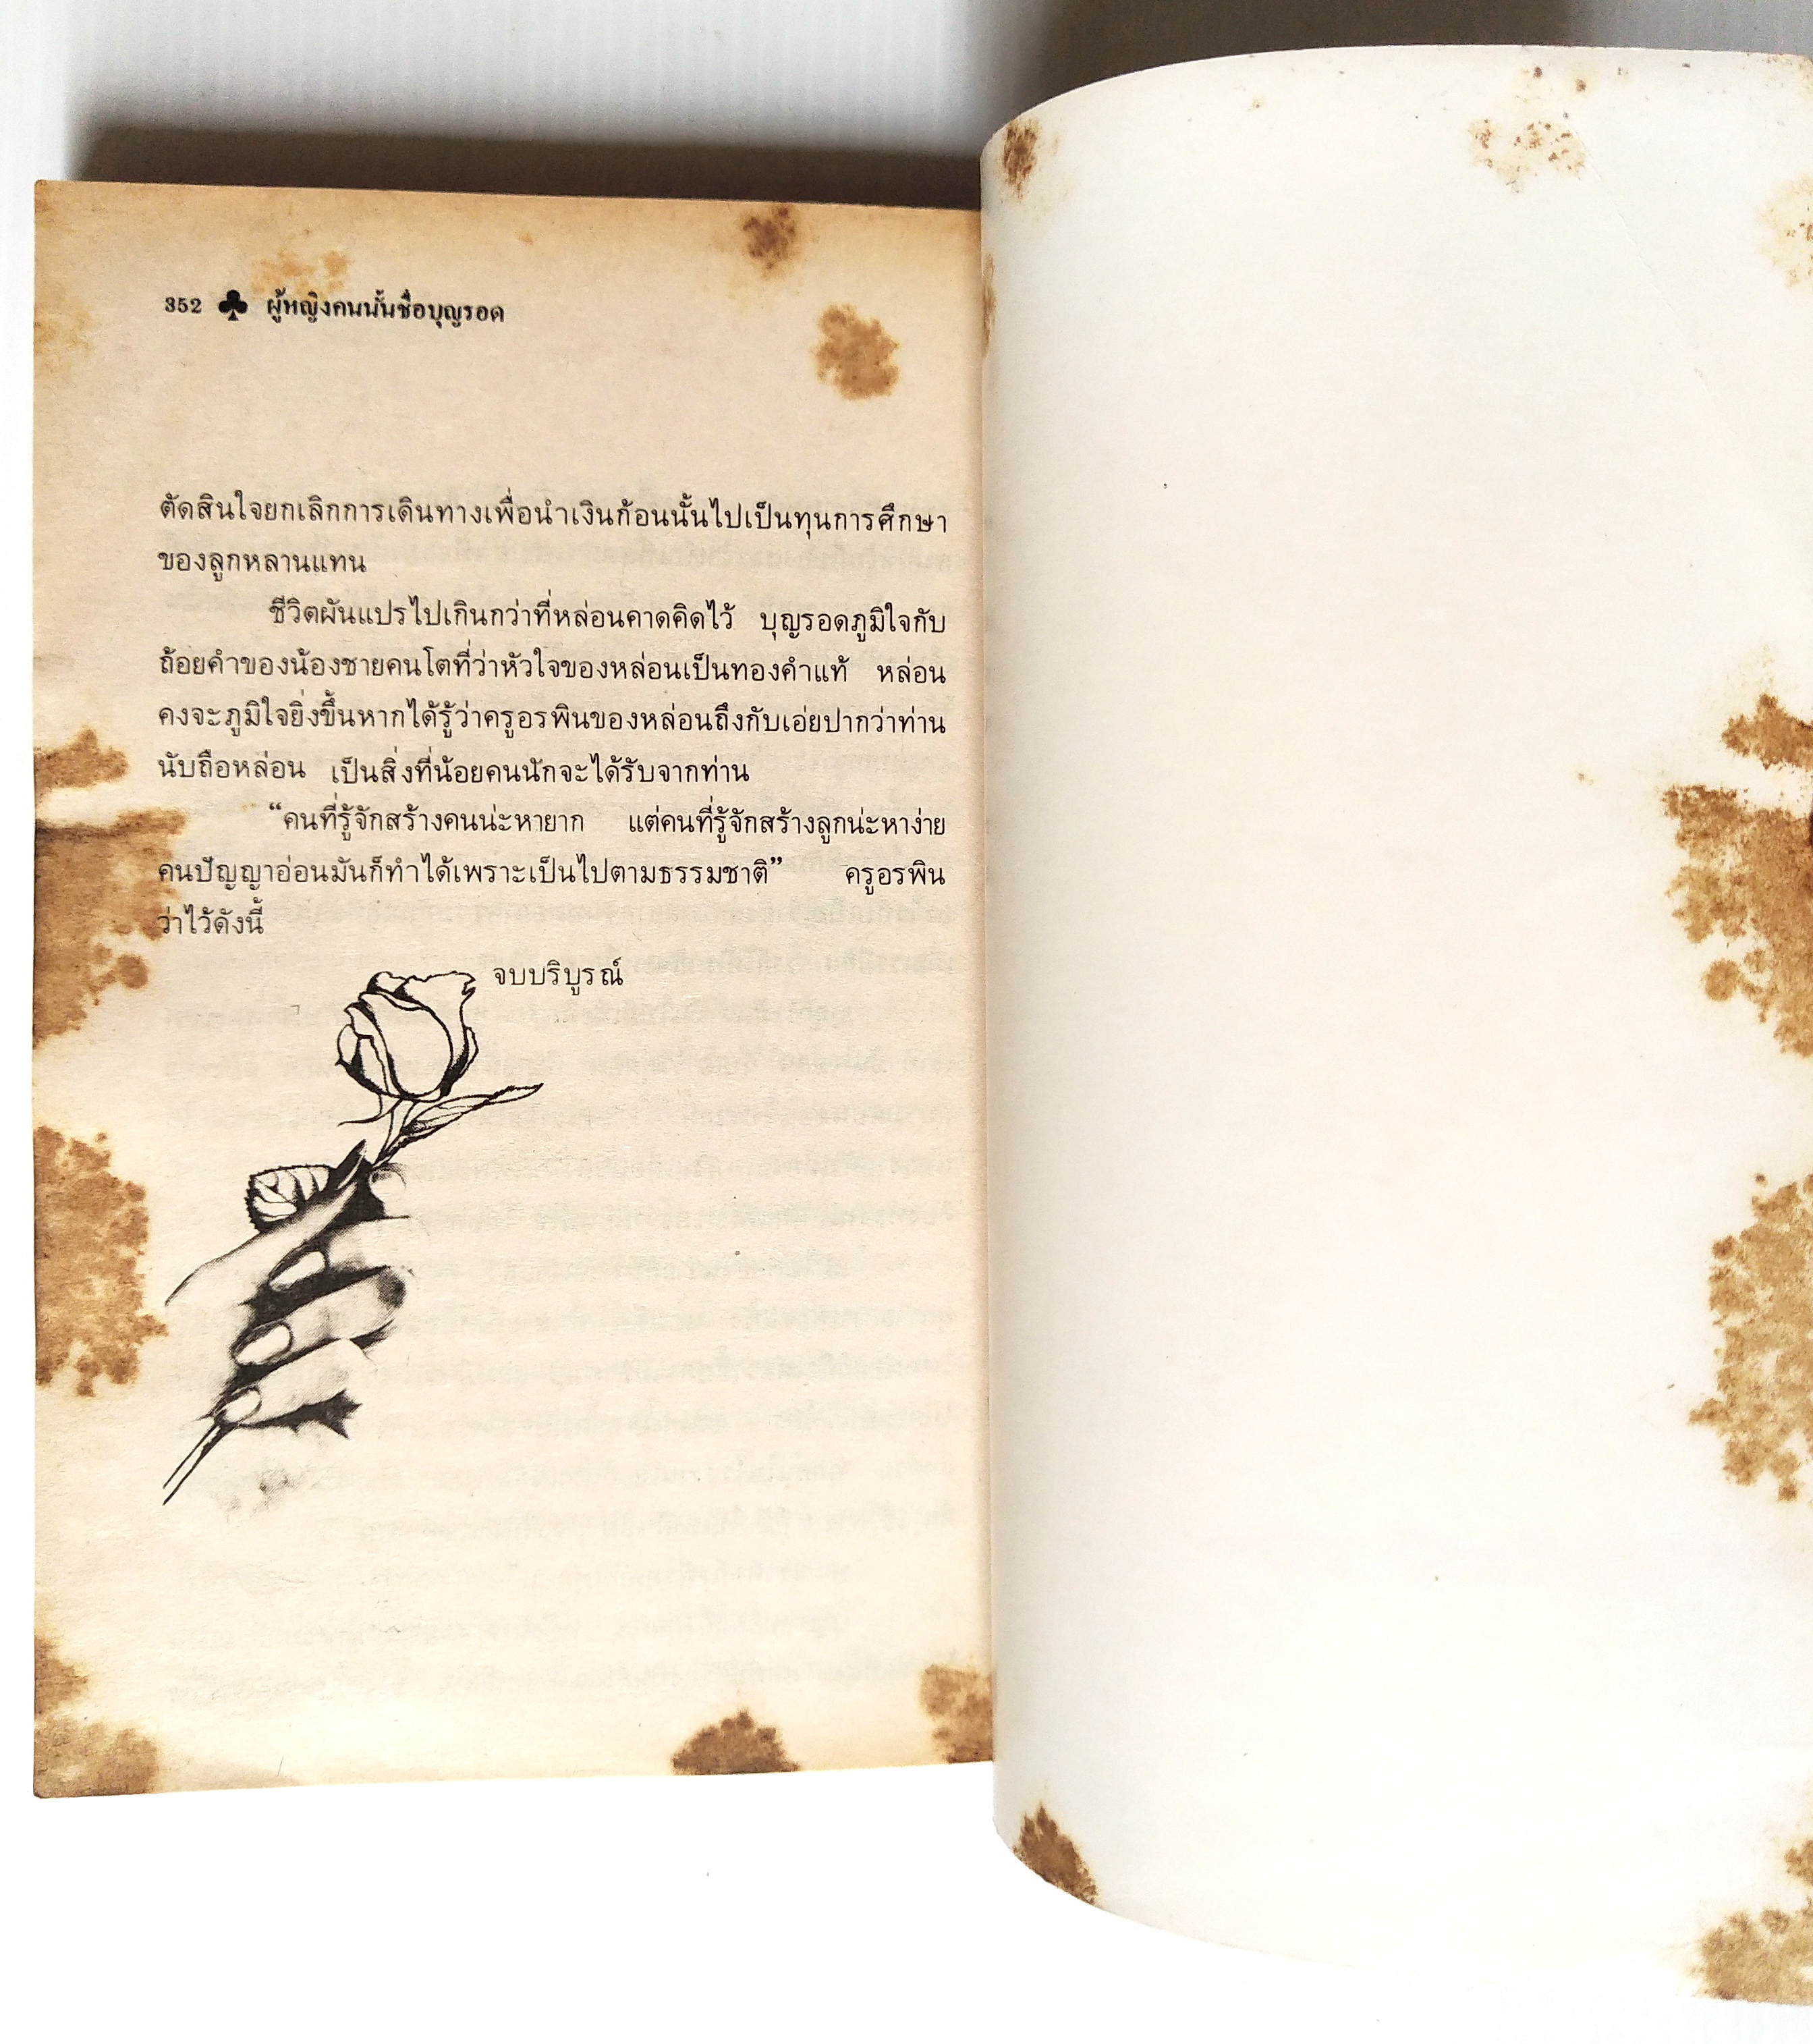 352 ♣ ผู้หญิงคนนั้นชื่อบุญรอด
ตัดสินใจยกเลิกการเดินทางเพื่อนำเงินก้อนนั้นไปเป็นทุนการศึกษา
ของลูกหลานแทน
ชีวิตผันแปรไปเกินกว่าที่หล่อนคาดคิดไว้ บุญรอดภูมิใจกับ
ถ้อยคำของน้องชายคนโตที่ว่าหัวใจของหล่อนเป็นทองคำแท้ หล่อน
คงจะภูมิใจยิ่งขึ้นหากได้รู้ว่าครูอรพินของหล่อนถึงกับเอ่ยปากว่าท่าน
นับถือหล่อน เป็นสิ่งที่น้อยคนนักจะได้รับจากท่าน
“คนที่รู้จักสร้างคนน่ะหายาก แต่คนที่รู้จักสร้างลูกน่ะหาง่าย
คนปัญญาอ่อนมันก็ทำได้เพราะเป็นไปตามธรรมชาติ” ครูอรพิน
ว่าไว้ดังนี้
จบบริบูรณ์